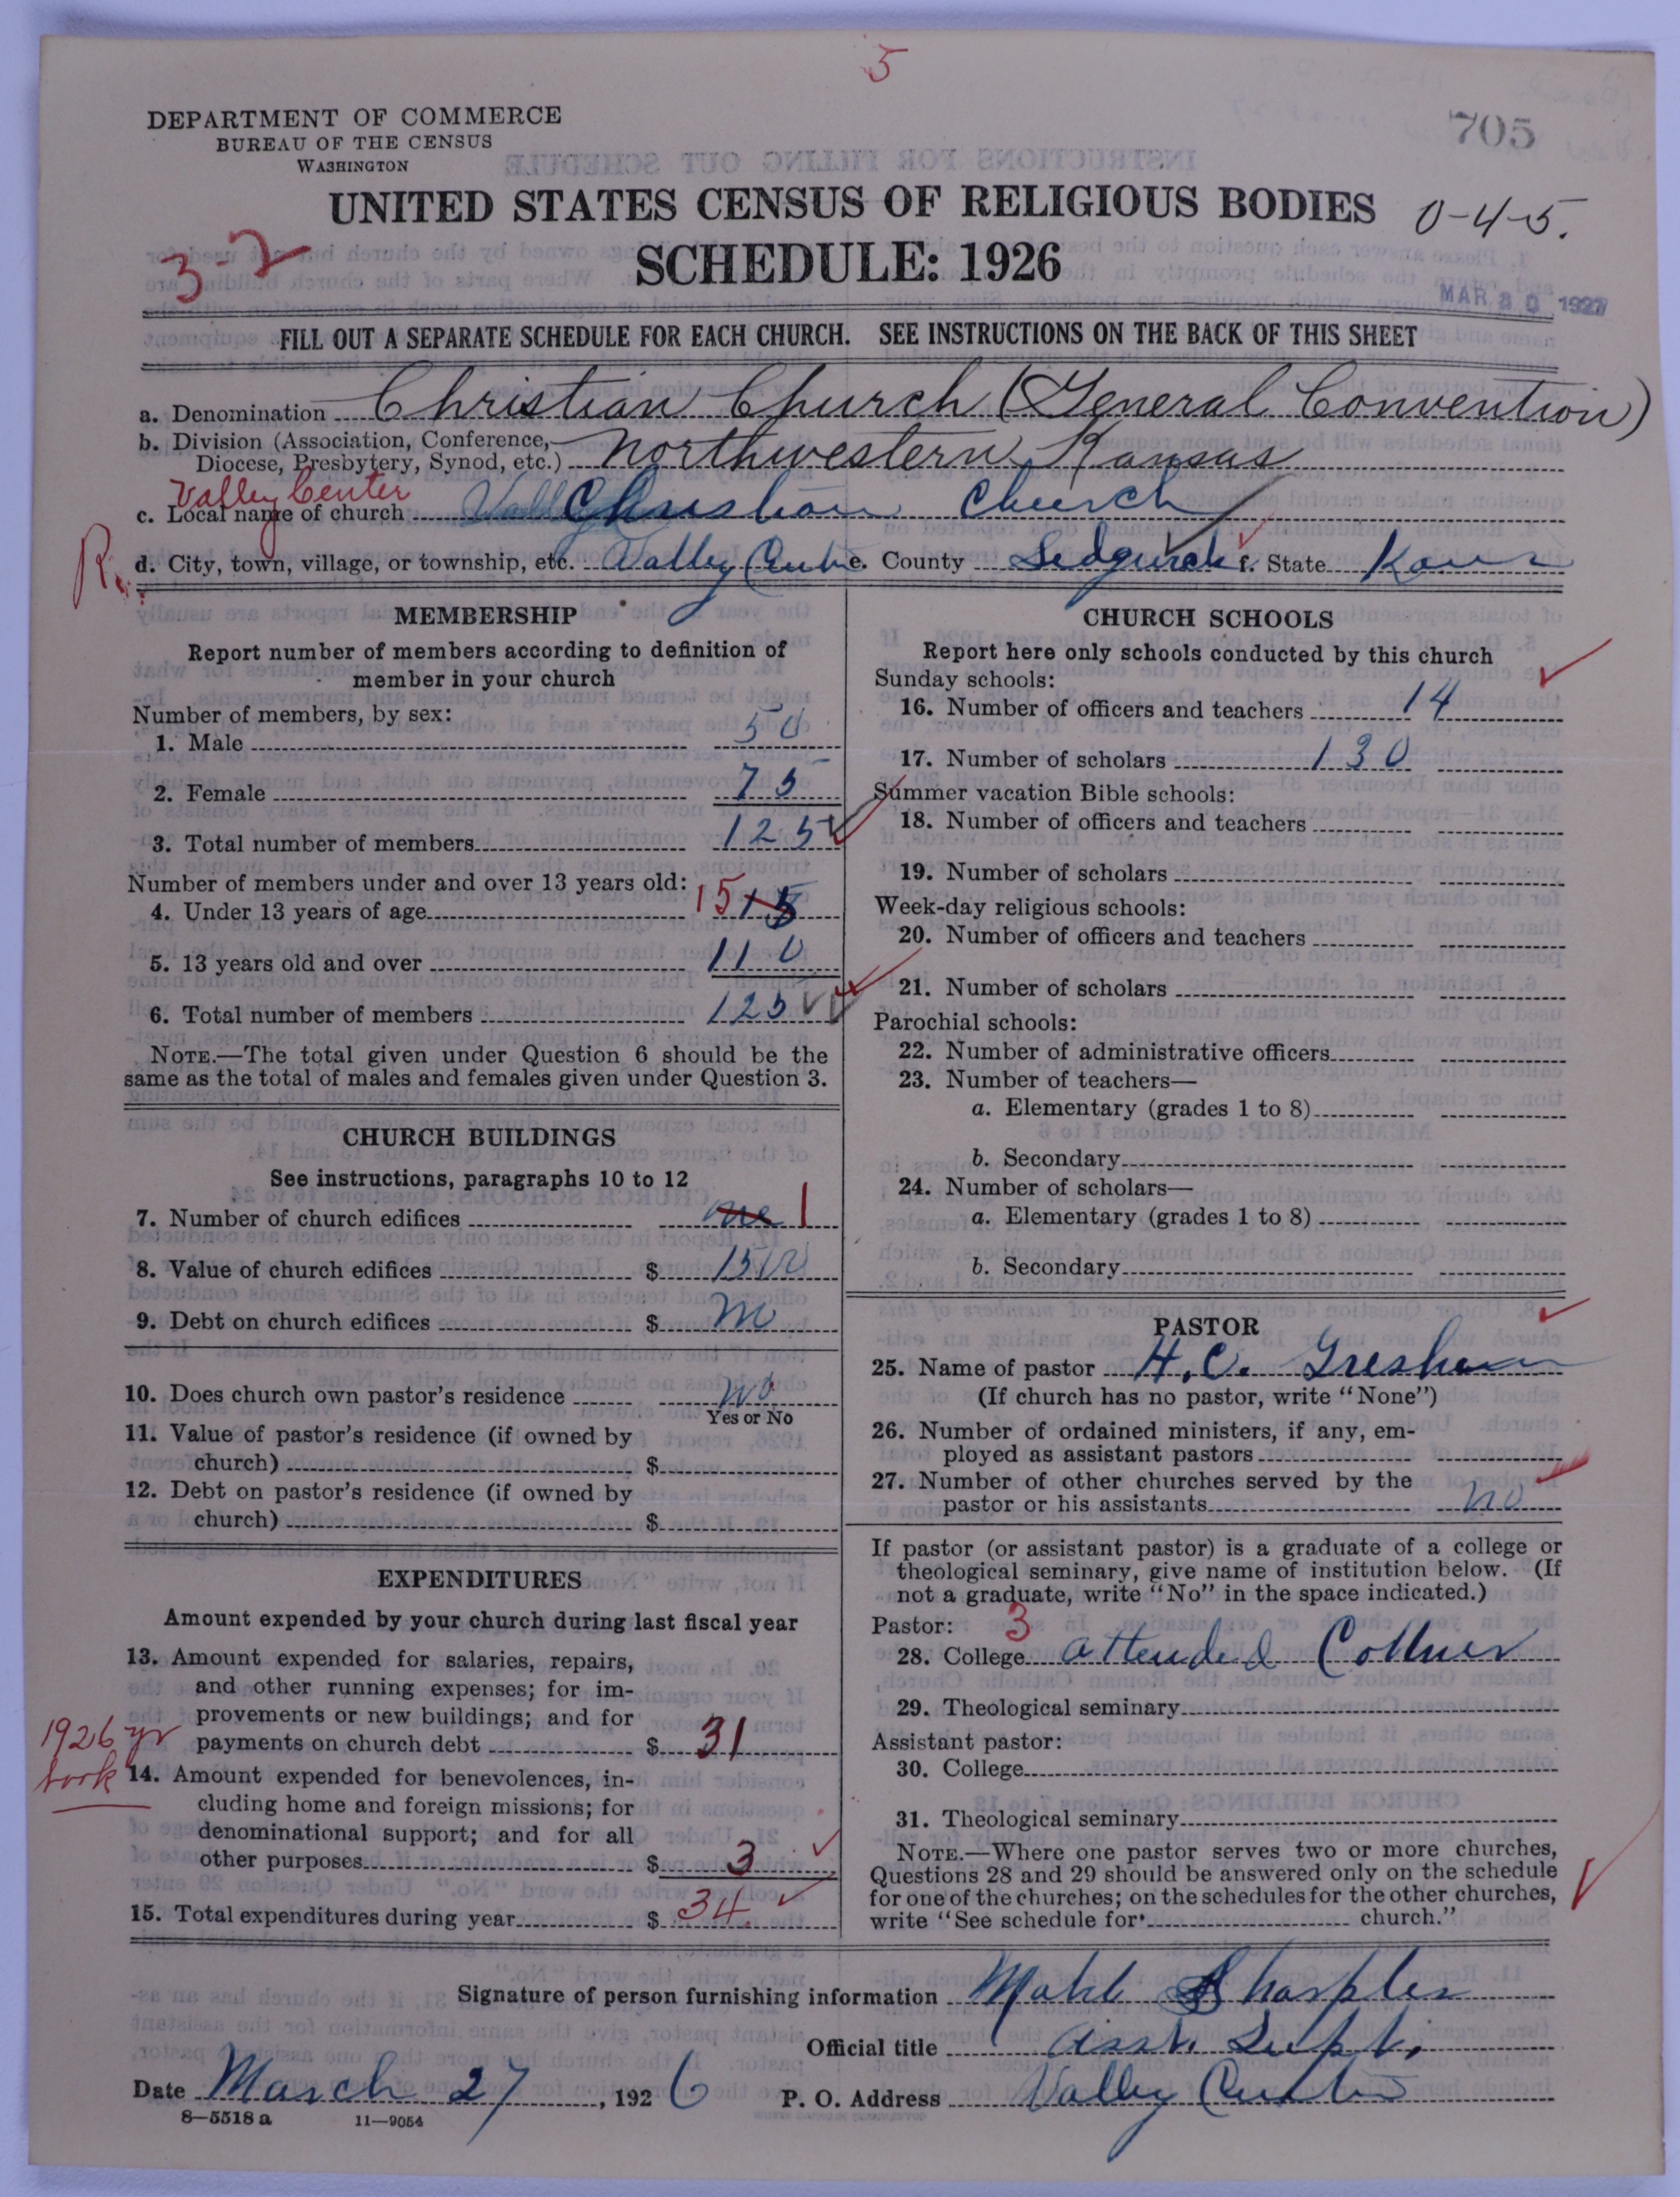 5
DEPARTMENT OF COMMERCE
BUREAU OF THE CENSUS
WASHINGTON
705
UNITED STATES CENSUS OF RELIGIOUS BODIES
0-4-5.
SCHEDULE: 1926
3-2
MAR 30 1927
FILL OUT A SEPARATE SCHEDULE FOR EACH CHURCH. SEE INSTRUCTIONS ON THE BACK OF THIS SHEET
a. Denomination Christian Church (General Convention)
b. Division (Association, Conference, Diocese, Presbytery, Synod, etc.) Northwestern Kansas
Valley Center
c. Local name of church Christian Church
R.
d. City, town, village, or township, etc. Valley Center e. County Sedgwick f. State Kans
MEMBERSHIP
Report number of members according to definition of
member in your church
Number of members, by sex:
1. Male 50
2. Female 75
3. Total number of members 125
Number of members under and over 13 years old:
4. Under 13 years of age 15 15
5. 13 years old and over 110
6. Total number of members 125
NOTE.—The total given under Question 6 should be the
same as the total of males and females given under Question 3.
CHURCH BUILDINGS
See instructions, paragraphs 10 to 12
7. Number of church edifices one 1
8. Value of church edifices $ 1500
9. Debt on church edifices $ no
10. Does church own pastor's residence no
Yes or No
11. Value of pastor's residence (if owned by
church) $
12. Debt on pastor's residence (if owned by
church) $
EXPENDITURES
Amount expended by your church during last fiscal year
13. Amount expended for salaries, repairs,
and other running expenses; for im-
provements or new buildings; and for
payments on church debt $ 31
1926 yr
book
14. Amount expended for benevolences, in-
cluding home and foreign missions; for
denominational support; and for all
other purposes $ 3
15. Total expenditures during year $ 34
CHURCH SCHOOLS
Report here only schools conducted by this church
Sunday schools:
16. Number of officers and teachers 14
17. Number of scholars 130
Summer vacation Bible schools:
18. Number of officers and teachers
19. Number of scholars
Week-day religious schools:
20. Number of officers and teachers
21. Number of scholars
Parochial schools:
22. Number of administrative officers
23. Number of teachers—
a. Elementary (grades 1 to 8)
b. Secondary
24. Number of scholars—
a. Elementary (grades 1 to 8)
b. Secondary
PASTOR
25. Name of pastor H. C. Gresham
(If church has no pastor, write "None")
26. Number of ordained ministers, if any, em-
ployed as assistant pastors
27. Number of other churches served by the
pastor or his assistants no
If pastor (or assistant pastor) is a graduate of a college or
theological seminary, give name of institution below. (If
not a graduate, write "No" in the space indicated.)
Pastor: 3
28. College attended
29. Theological seminary
Assistant pastor:
30. College
31. Theological seminary
NOTE.—Where one pastor serves two or more churches,
Questions 28 and 29 should be answered only on the schedule
for one of the churches; on the schedules for the other churches,
write "See schedule for church."
Signature of person furnishing information Sharples
Official title Asst. Supt.
Date March 27, 1926 P. O. Address Valley Center
8—5518 a 11—9054